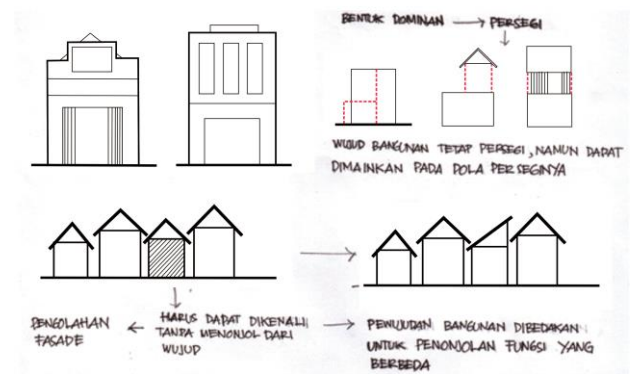 BENTUK DOMINAN → PERSEGI
WUJUD BANGUNAN TETAP PERSEGI, NAMUN DAPAT
DIMAINKAN PADA POLA PERSEGINYA
PENGOLAHAN
FASADE
HARUS DAPAT DIKENALI
TANPA MENONJOL DARI
WUJUD
PEWUJUDAN BANGUNAN DIBEDAKAN
UNTUK PENONJOLAN FUNGSI YANG
BERBEDA